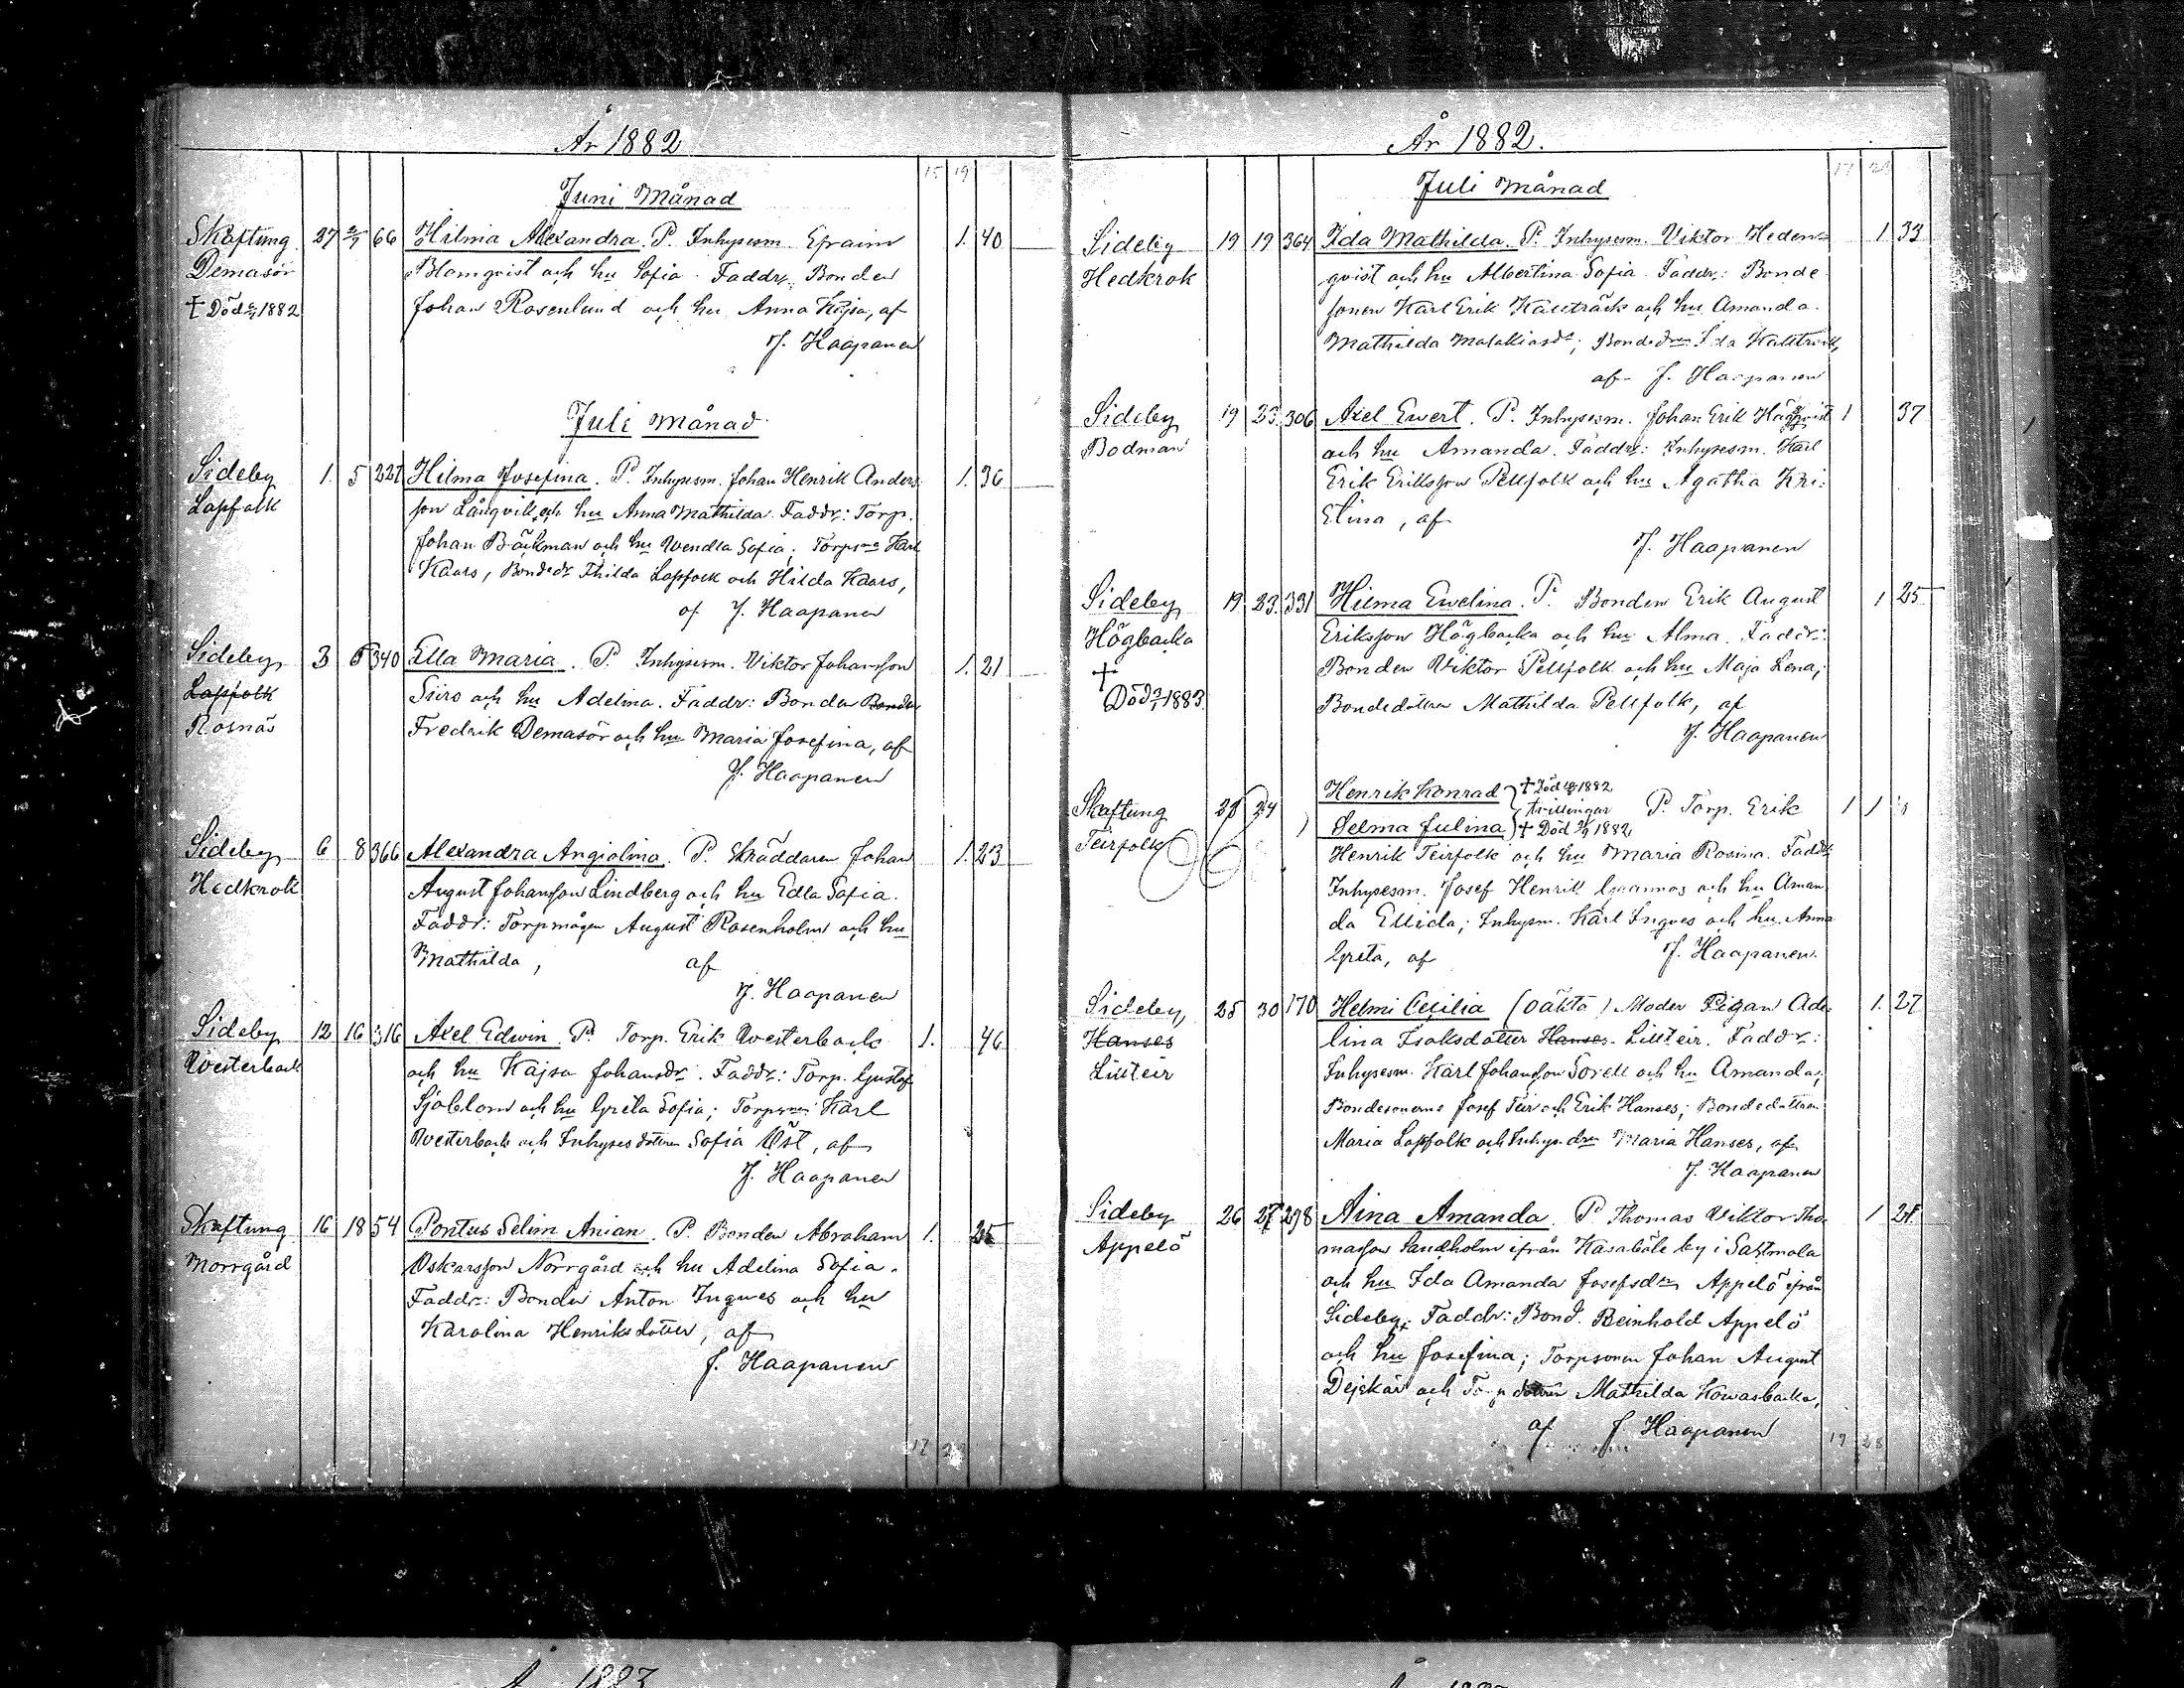 År 1882
15 19
Juni Månad
Skaftung 27 2/7 66 Hilma Alexandra. P. Inhysesm. Efraim 1. 40
Demasör Blomqvist och hu Sofia. Faddr: Bonden
† Död 1882 Johan Rosenlund och hu Anna Kajsa, af
J. Haapanen
Juli Månad
Sideby 1. 5 227 Hilma Josefina. P. Inhysesm. Johan Henrik Anders 1. 36
Lappfolk son Långvik och hu Anna Mathilda. Faddr: Torp.
Johan Bäckman och hu Wendla Sofia; Torpsne Karl
Kaars, Bondedr Thilda Lappfolk och Hilda Kaars,
af J. Haapanen
Sideby 3 8 340 Ella Maria. P. Inhysesm. Viktor Johansson 1. 21
Lappfolk Siiro och hu Adelina. Faddr: Bonden Bonden
Rosnäs Fredrik Demasör och hu Maria Josefina, af
J. Haapanen
Sideby 6 8 366 Alexandra Angiolina. P. Skräddaren Johan 1. 23
Hedkrok August Johansson Lindberg och hu Edla Sofia.
Faddr: Torpmågen August Rosenholm och hu
Mathilda, af
J. Haapanen
Sideby 12 16 316 Axel Edwin P. Torp. Erik Westerback 1. 46
Westerback och hu Kajsa Johansdr. Faddr: Torp. Gustaf
Sjöblom och hu Greta Sofia; Torpsne Karl
Westerback och Inhysesdottren Sofia Öst, af
J. Haapanen
Skaftung 16 18 54 Pontus Selim Anian. P. Bonden Abraham 1. 25
Norrgård Oskarsson Norrgård och hu Adelina Sofia.
Faddr: Bonden Anton Ingwes och hu
Karolina Henriksdotter, af
J. Haapanen
17
År 1882.
17
Juli Månad
Sideby 19 19 364 Ida Mathilda. P. Inhysesm. Viktor Heden= 1 33
Hedkrok qvist och hu Albertina Sofia. Faddr: Bonde
sonen Karl Erik Källträsk och hu Amanda
Mathilda Malakiasdr; Bondedrn Ida Källträsk,
af J. Haapanen
Sideby 19 23 306 Axel Ewert. P. Inhysesm. Johan Erik Häggqvist 1 37
Bodman och hu Amanda. Faddr: Inhysesm. Karl
Erik Eriksson Pellfolk och hu Agatha Kri:
Stina, af
J. Haapanen
Sideby 19 23. 331 Hilma Ewelina. P. Bonden Erik August 1 25
Högbacka Eriksson Högbacka och hu Alma. Faddr:
† Bonden Viktor Pellfolk och hu Maja Lena;
Död 3/1 1883. Bondedottren Mathilda Pellfolk, af
J. Haapanen
Henrik Konrad † Död 1882
Skaftung 23 24 tvillingar P. Torp. Erik 1 1
Selma Julina † Död 1882
Teirfolk Henrik Teirfolk och hu Maria Rosina. Faddr
Inhysesm. Josef Henrik Grannas och hu Aman
da Ellida; Inhysm. Karl Ingves och hu Anna
Greta, af J. Haapanen.
Sideby 25 30 170 Helmi Cecilia (oäkta) Moder Pigan Ade 1. 27
Hanses lina Isaksdotter Hanses Lillteir. Faddr:
Lillteir Inhysesm. Karl Johansson Sorell och hu Amanda;
Bondesonerne Josef Teir och Erik Hanses; Bondedottren
Maria Lappfolk och Inhysdrn Maria Hanses, af
J. Haapanen
Sideby 26 27 298 Aina Amanda. P. Thomas Viktor Tho 1 21
Appelö masson Sandholm ifrån Kasaböle by i Sastmola
och hu Ida Amanda Josefsdr Appelö ifrån
Sideby. Faddr: Bond. Reinhold Appelö
och hu Josefina; Torpsonen Johan August
Dejskär och Torpdottren Mathilda Kowasbacka,
af J. Haapanen
19 28
År 1883